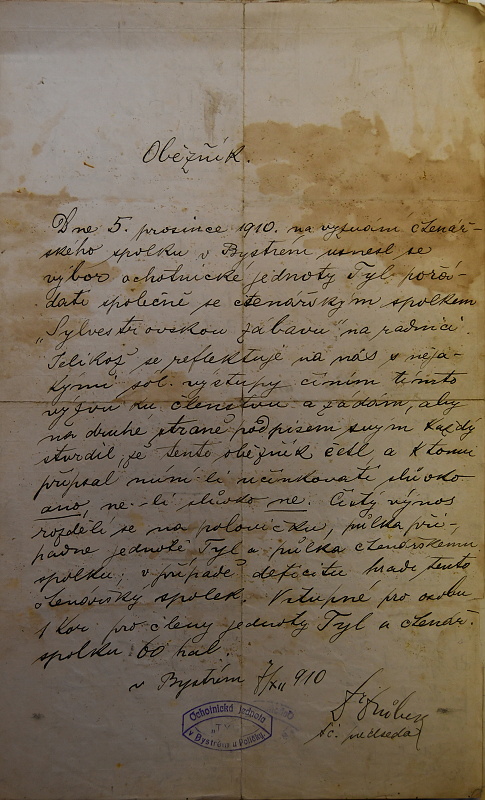 Oběžník.
Dne 5. prosince 1910. na vyzvání čtenář-
ského spolku v Bystrém usnesl se
výbor ochotnické jednoty Tyl pořá-
dati společně se čtenářským spolkem
„Sylvestrovskou zábavu" na radnici.
Jelikož se reflektuje na nás s něja-
kými sol. výstupy činím tímto
výzvu ku členstvu a žádám, aby
na druhé straně podpisem svým každý
stvrdil, že tento oběžník četl, a k tomu
připsal míní li účinkovati slůvko
ano, ne-li slůvko ne. Čistý výnos
rozdělí se na polovičku, půlka při-
padne jednotě Tyl a půlka čtenářskému
spolku; v případě deficitu hradí tento
spolek. Vstupné pro osobu
1 Kor. pro členy jednoty Tyl a čtenář.
spolku 60 hal.
v Bystrém 7/XII 910
předseda
Ochotnická jednota
„Tyl"
v Bystrém u Poličky.